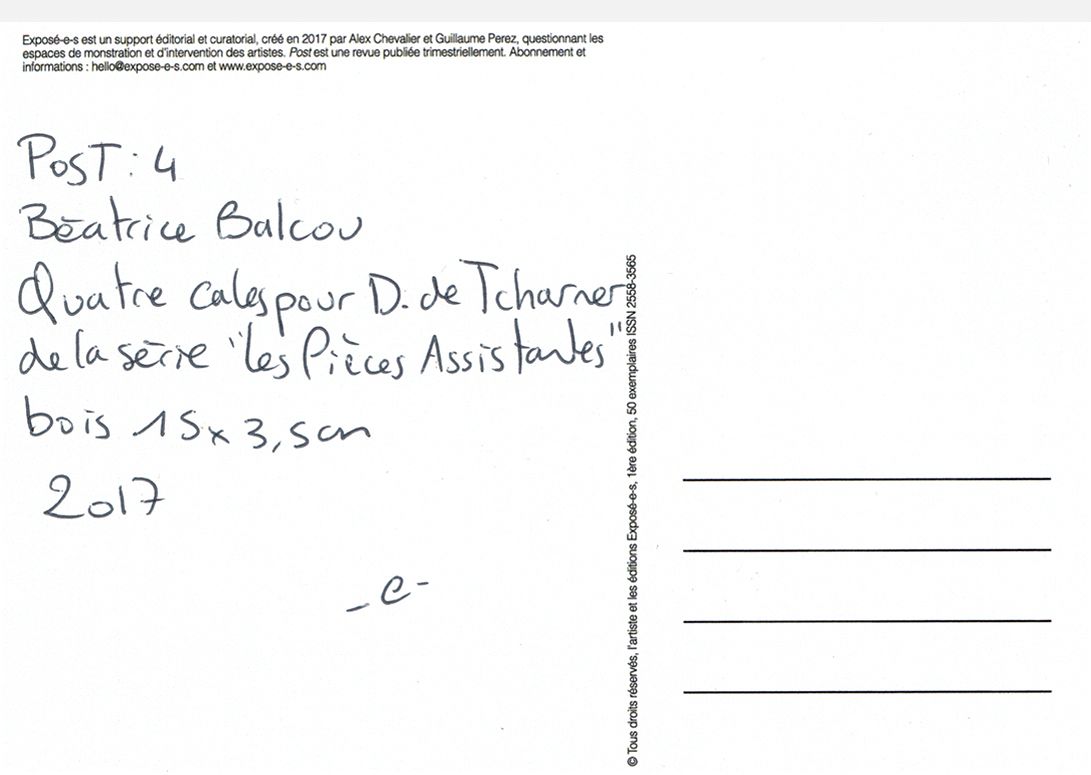 Exposé-e-s est un support éditorial et curatorial, créé en 2017 par Alex Chevalier et Guillaume Perez, questionnant les
espaces de monstration et d'intervention des artistes. Post est une revue publiée trimestriellement. Abonnement et
informations : hello@expose-e-s.com et www.expose-e-s.com
PosT : 4
Béatrice Balcou
Quatre cales pour D. de Tcharner
de la série "Les Pièces Assistantes"
bois 15x3,5cm
2017
-e-
© Tous droits réservés, l'artiste et les éditions Exposé-e-s, 1ère édition, 50 exemplaires ISSN 2558-3565